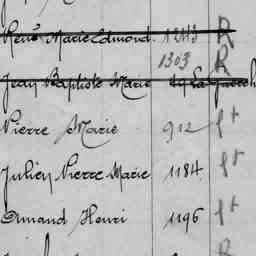 René Marie Edmond 1243 R
1303 R
Jean Baptiste Marie
Pierre Marie 912 St
Julien Pierre Marie 1184 St
Armand Henri 1196 St
R